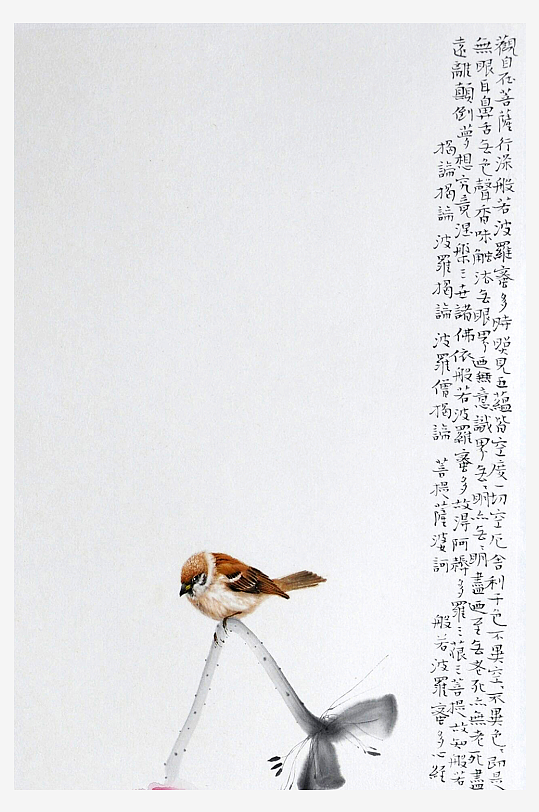 觀自在菩薩行深般若波羅蜜多時照見五蘊皆空度一切空厄舍利子色不異空、不異色、即是
無眼耳鼻舌无色聲香味觸法无眼界迺無意識界无、明亦无、明盡迺至无老死亦無老死盡
遠離顛倒夢想究竟涅槃三世諸佛依般若波羅蜜多故得阿耨多羅三藐三菩提故知般若
揭諦揭諦 波羅揭諦 波羅僧揭諦 菩提薩婆訶 般若波羅蜜多心經